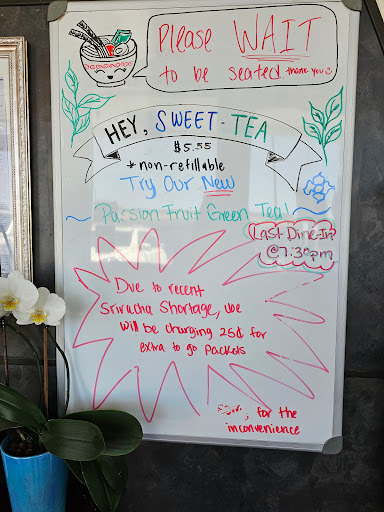 Please WAIT
to be seated thank you
HEY, SWEET-TEA
$5.55
*non-refillable
Try Our New
~ Passion Fruit Green Tea! ~
Last Dine-In
@7:30pm
Due to recent
Sriracha Shortage, we
will be charging 25¢ for
extra to go packets
for the
inconvenience